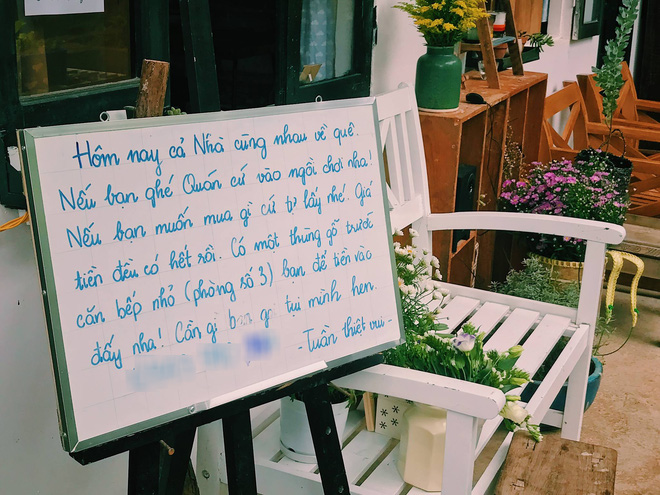 Hôm nay cả Nhà cùng nhau về quê.
Nếu bạn ghé Quán cứ vào ngồi chơi nha!
Nếu bạn muốn mua gì cứ tự lấy nhé! Giá
tiền đều có hết rồi. Có một thùng gỗ trước
căn bếp nhỏ (phòng số 3) bạn để tiền vào
đấy nha! Cần gì bạn gọi tui mình hen.
-Tuần thiệt vui-